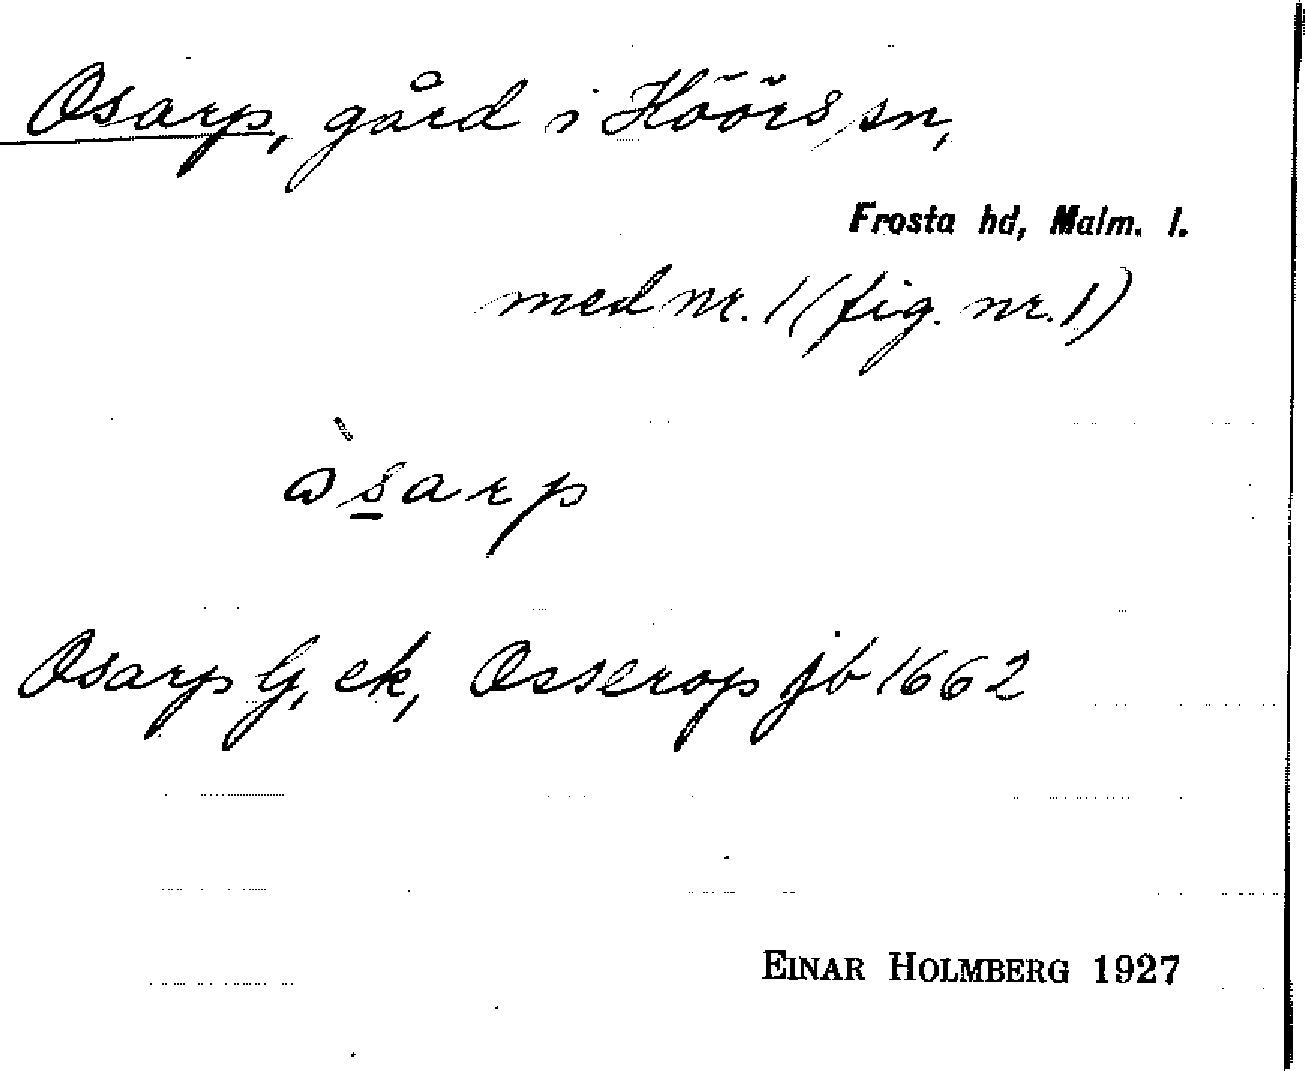 Osarp, gård i Höörs sn,
Frosta hd, Malm. l.
med nr. 1 (fig. nr. 1)
òsarp
Osarp G, ek, Osserop jb 1662
EINAR HOLMBERG 1927